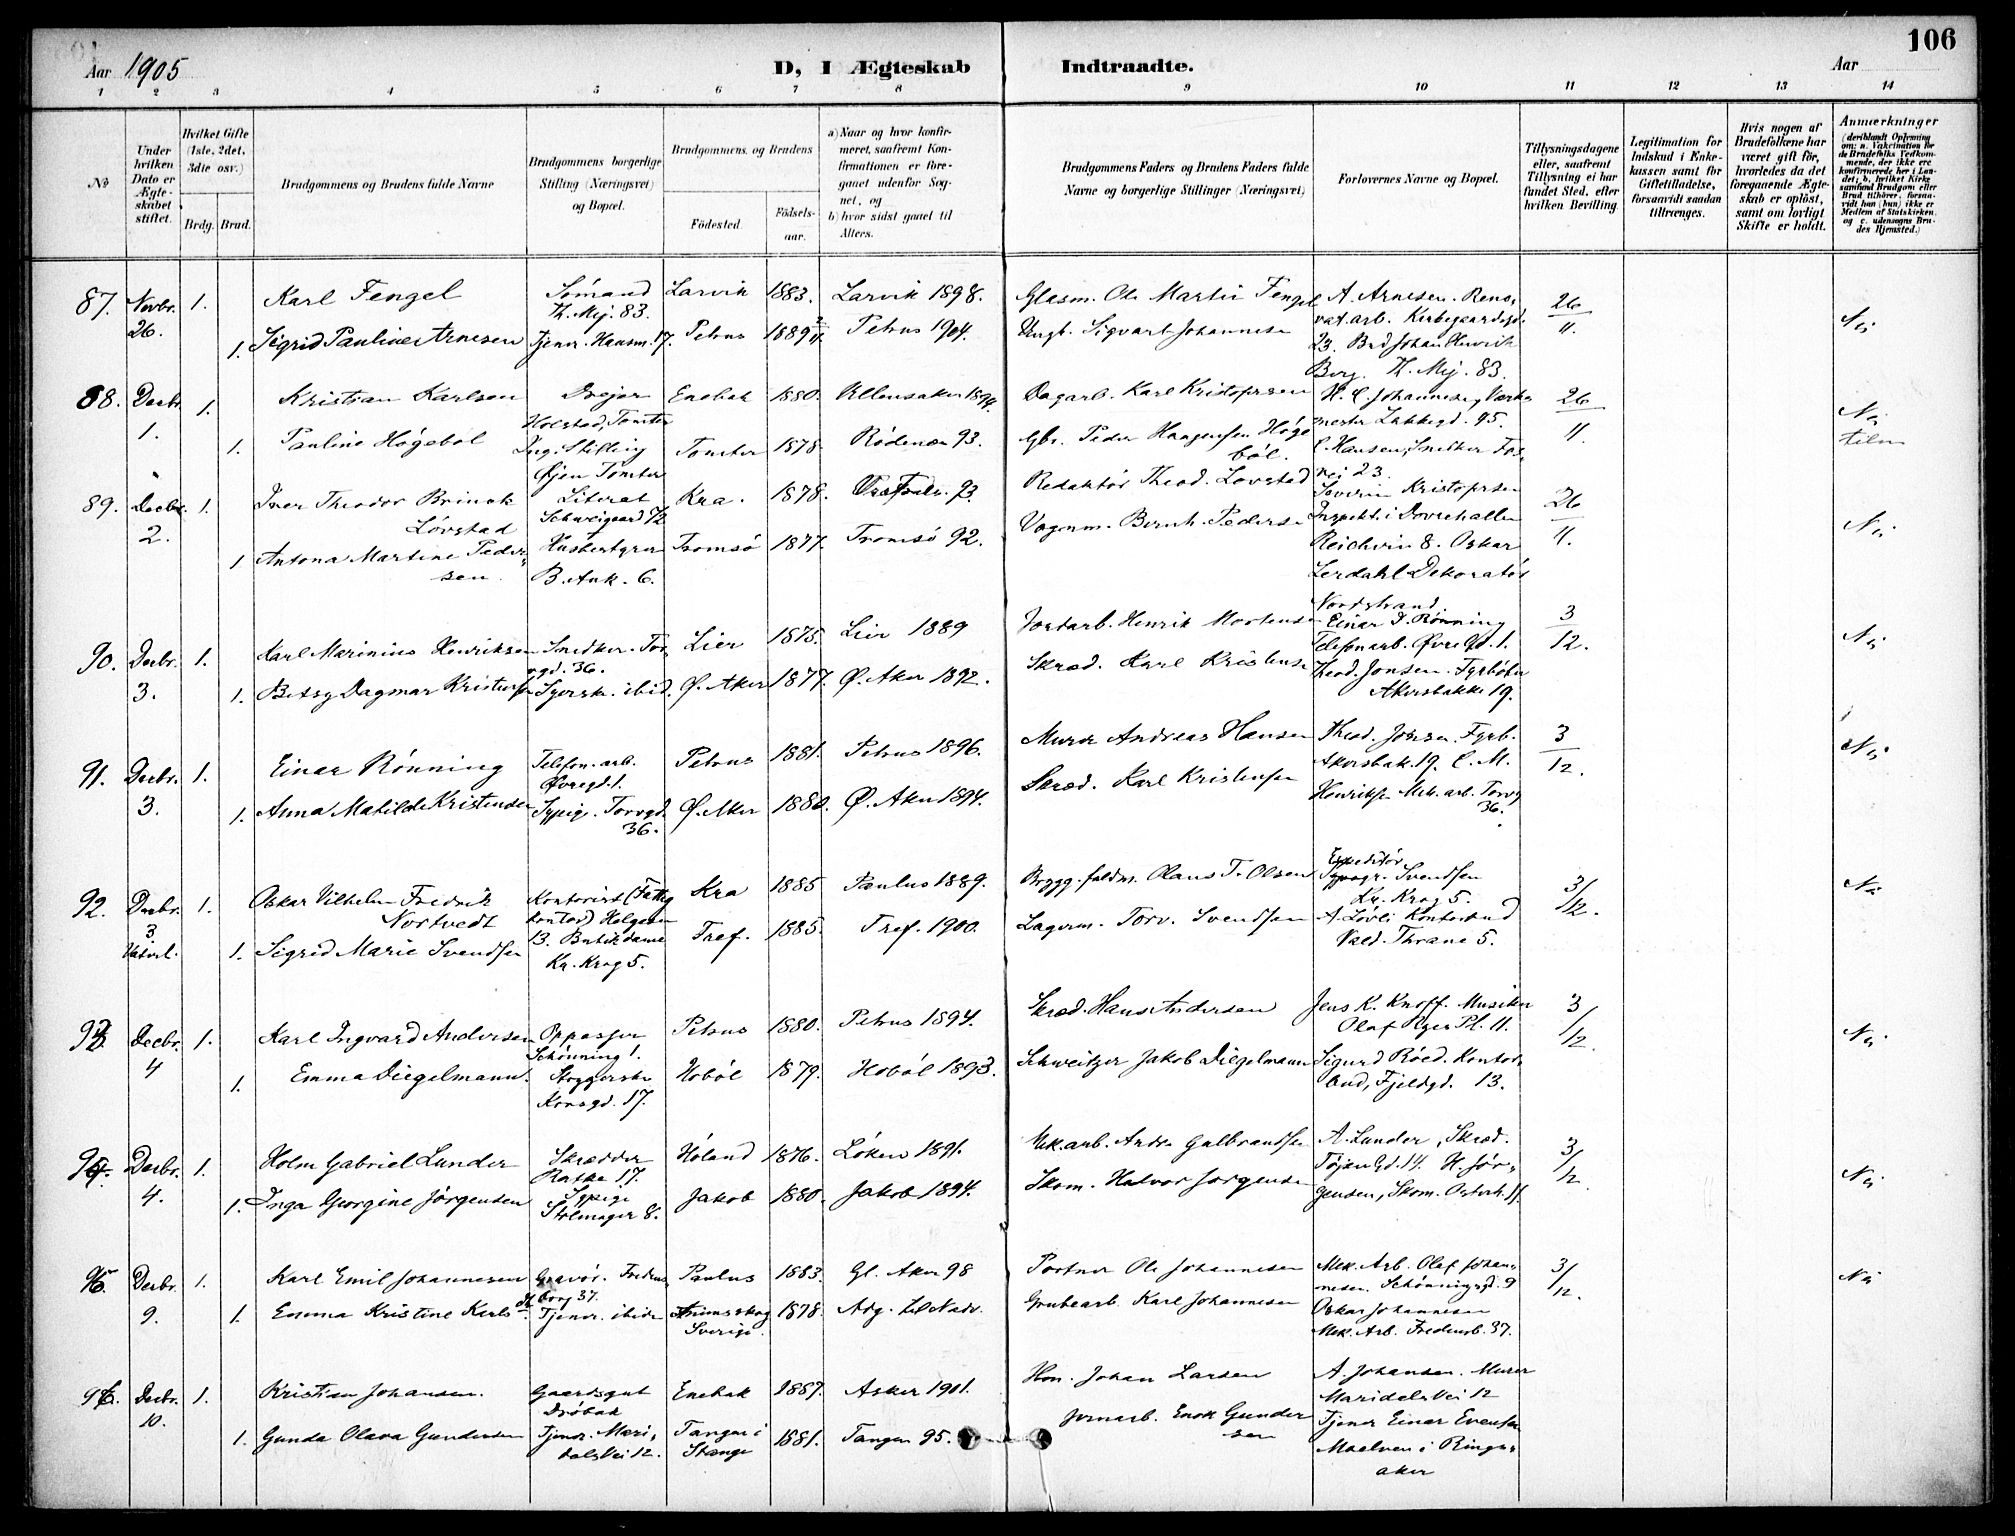 Aar 1905
D, I Ægteskab Indtraadte.
Aar
106
1 2 3 4 5 6 7 8 9 10 11 12 13 14
No
Under hvilken Dato er Ægteskabet stiftet.
Hvilket Gifte (1ste, 2det, 3die osv.)
Brdg. Brud.
Brudgommens og Brudens fulde Navne
Brudgommens borgerlige Stilling (Næringsvei) og Bopæl.
Brudgommens og Brudens
Fødested.
Fødselsaar.
a) Naar og hvor konfirmeret, saafremt Konfirmationen er foregaaet udenfor Sognet, og
b) hvor sidst gaaet til Alters.
Brudgommens Faders og Brudens Faders fulde Navne og borgerlige Stillinger (Næringsvei)
Forlovernes Navne og Bopæl.
Tillysningsdagene eller, saafremt Tillysning ei har fundet Sted, efter hvilken Bevilling.
Legitimation for Indskud i Enkekassen samt for Giftetilladelse, forsaavidt saadan tiltrænges.
Hvis nogen af Brudefolkene har været gift før, hvorledes da det foregaaende Ægteskab er opløst, samt om lovligt Skifte er holdt.
Anmærkninger
(deriblandt Oplysning om: a. Vakcination for de Brudefolks Vedkommende, der ikke ere konfirmerede her i Landet; b. hvilket Kirkesamfund Brudgom eller Brud tilhører, forsaavidt han (hun) ikke er Medlem af Statskirken, og c. udensogns Brudes Hjemsted.)
87. Novbr. 26. 1. Karl Fengel Sømand Th. Mej. 83. Larvik 1883. Larvik 1898. Glasm. Ole Martin Fengel A. Arnesen. Renovat. arb. Kirkegaardsgd. 26/11. Nei
1. Sigrid Pauline Arnesen Tjener. Hansm. 17. Petrus 1889 Petrus 1904. Sigvart Johannesen 23. Johan Henrik Berg. Th. Mej. 83.
88. Decbr 1. 1. Kristian Karlsen Drejer Holstad, Tomter Enebak 1880. Ullensaker 1894. Dagarb. Karl Kristofersen H. C. Johannesen, Værkmester Lakkegd. 95. 26/11. Nei
1. Pauline Høgebøl Ing. Stilling Tomter Tomter 1878. Rødenæs 93. Gbr. Peder Haagensen Høgebøl. C. Hansen, Snedker 23.
89. Decbr. 2. 1. Iver Theodor Brinck Løvstad Literat Schweigaard 72 Kra. 1878. 93. Redaktør Theod. Lovstad Severin Kristofersen Inspekt. i Dovrehallen 26/11. Nei
1 Antona Martine Pedersen. B. Ank. 6. Tromsø 1877. Tromsø 92. Vognm. Bernh. Pedersen 8. Oskar Lerdahl Dekoratør Nordstrand.
90. Decbr. 3. 1. Karl Marinius Henriksen Snedker. Torvgd. 36. Lier 1875. Lier 1889 Jordarb. Henrik Mortensen Einar D. Rønning Telefonarb. Øvregd. 1. 3/12. Nei
1. Betsy Dagmar Kristensen Syersk. ibid. Ø. Aker 1877. Ø. Aker 1892. Skræd. Karl Kristensen Theod. Jonsen. Fyrbøter Akersbakke 19.
91. Decbr. 3. 1. Einar Rønning Telefon. arb. Øvregd. 1. Petrus 1881. Petrus 1896. Murer Andreas Hansen Theod. Jonsen. Fyrb. Akersbak. 19. C. M. 3/12. Nei
1. Anna Matilde Kristensen Sypige. Torvgd. 36. Ø. Aker 1880. Ø. Aker 1894. Skræd. Karl Kristensen Henriksen Mek. arb. Torvg 36.
92. Decbr. 3 1. Oskar Vilhelm Fredrik Nortvedt Kontorist (Fattigkontor) 13. Kra 1885 Paulus 1889. Brygg. Olaus T. Olsen Expeditør Svendsen Kr. Krog 5. 3/12. Nei
1. Sigrid Marie Svendsen Butikdame Kr. Krog 5. Tref. 1885. Tref. 1900. Lagerm. Torv. Svendsen A. Løvli Kontorbud Vald. Thrane 5.
93. Decbr. 4 1. Karl Ingvard Andersen Oppasser Schønning 1. Petrus 1880. Petrus 1894. Skræd. Hans Andersen Jens K. Knoff. Musiker Olaf Ryes Pl. 11. 3/12. Nei
1. Emma Diegelmann. Korsgd. 17. Hobøl 1879. Hobøl 1893. Schweitzer Jakob Diegelmann Sigurd Røed. Kontorbud, Fjeldgd. 13.
94. Decbr. 4. 1. Holm Gabriel Lunder Skrædder Ratke 17. Høland 1876. Løken 1891. Mek. arb. Andr. Gulbrandsen A. Lunder, Skræd. Tøjengd. 14. 3/12. Nei
1. Inga Georgine Jørgensen Sypige Stolmager 8. Jakob 1880. Jakob 1894. Skom. Halvor Jørgensen H. Jørgensen, Skom.
95 Decbr. 9. 1. Karl Emil Johannesen Gravør. Fredensborg 37. Paulus 1883. Gl. Aker 98 Portner Ole Johannesen Mek. Arb. Olaf Johannesen. Schønningsgd. 9 3/12. Nei
1. Emma Kristine Karlsd. Tjener. ibid. Sverige. 1878. Adg. til Nadv. Grubearb. Karl Johannesen Oskar Johannesen Mek. Arb. Fredensb. 37.
96. Decbr. 10. 1. Kristian Johansen. Gaardsgut Drøbak Enebak 1887. Asker 1901. Johan Larsen A. Johansen. Murer Maridalsvei 12
1. Gunda Olava Gundersen Tjener. Maridalsvei 12. Tangen i Stange 1881. Tangen 95. Jernarb. Enok Gundersen Tjener Einar Evensen Moelven i Ringsaker